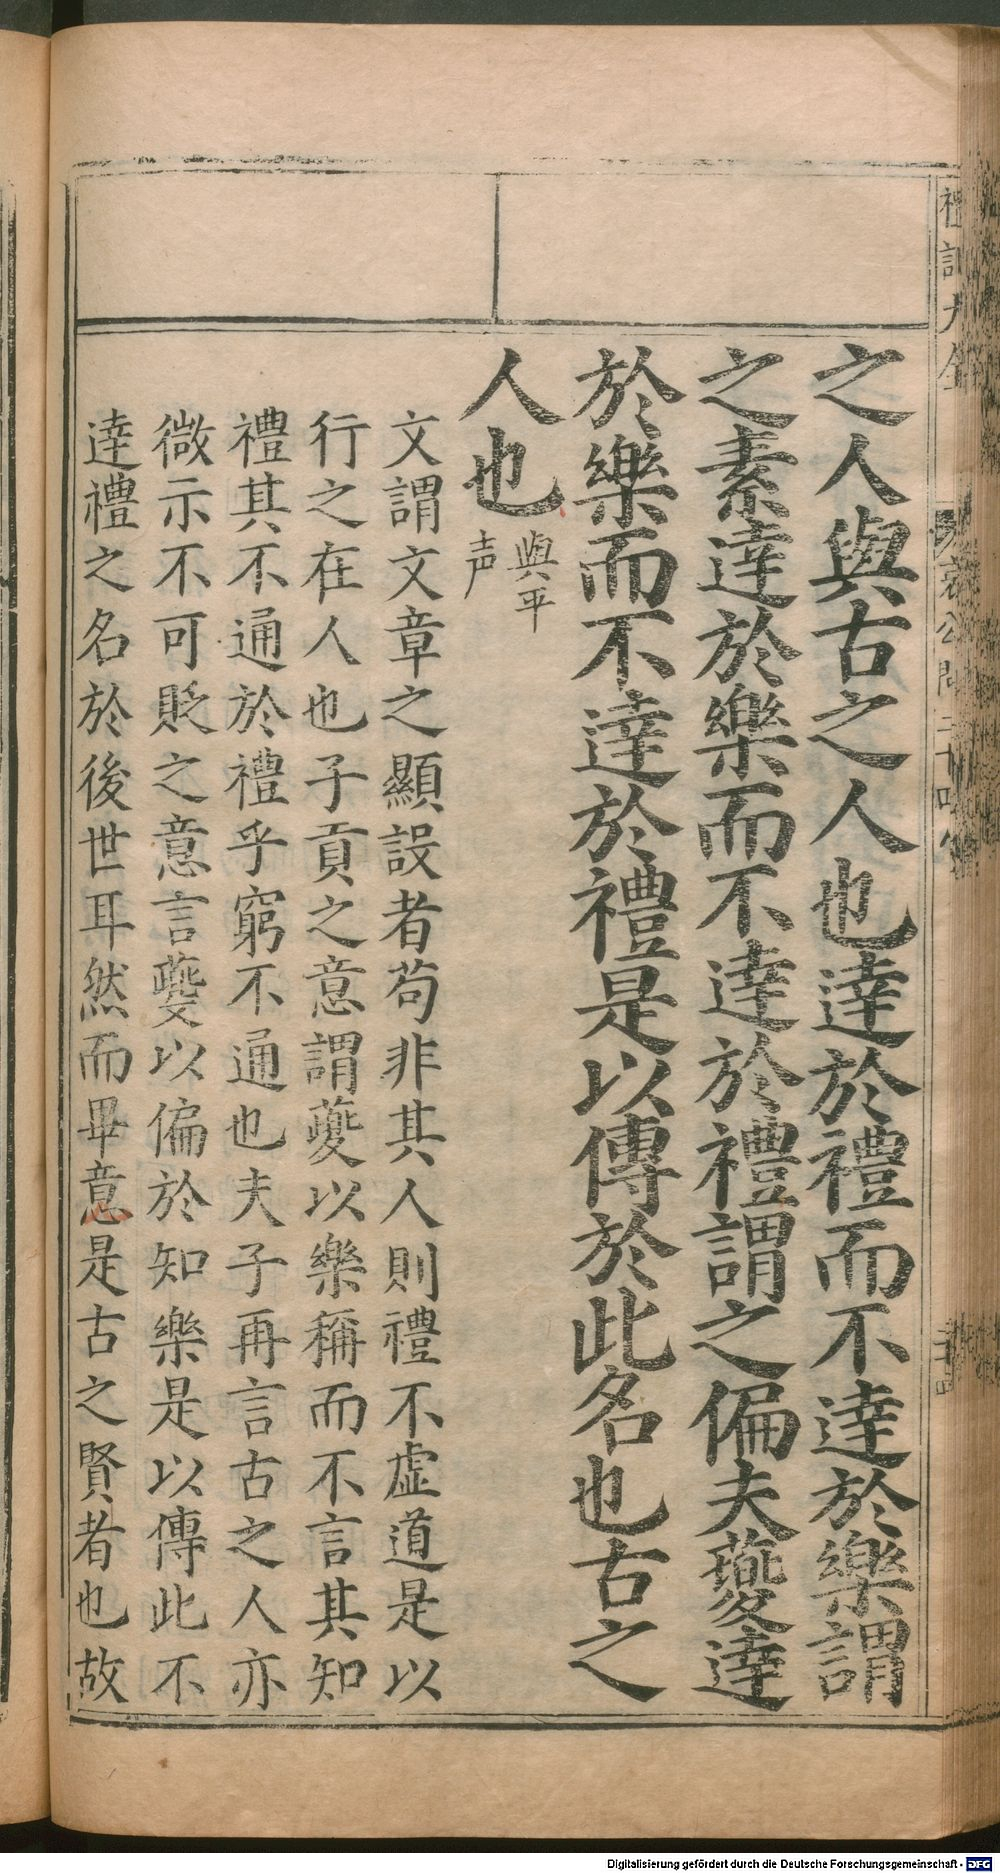 之人與古之人也達於禮而不達於樂謂
之素達於樂而不達於禮謂之偏夫夔達
於樂而不達於禮是以傳於此名也古之
人也
與平
声
文謂文章之顯設者苟非其人則禮不虚道是以
行之在人也子貢之意謂夔以樂稱而不言其知
禮其不通於禮乎窮不通也夫子再言古之人亦
微示不可貶之意言夔以偏於知樂是以傳此不
達禮之名於後世耳然而畢意是古之賢者也故
哀公問
Digitalisierung gefördert durch die Deutsche Forschungsgemeinschaft - DFG